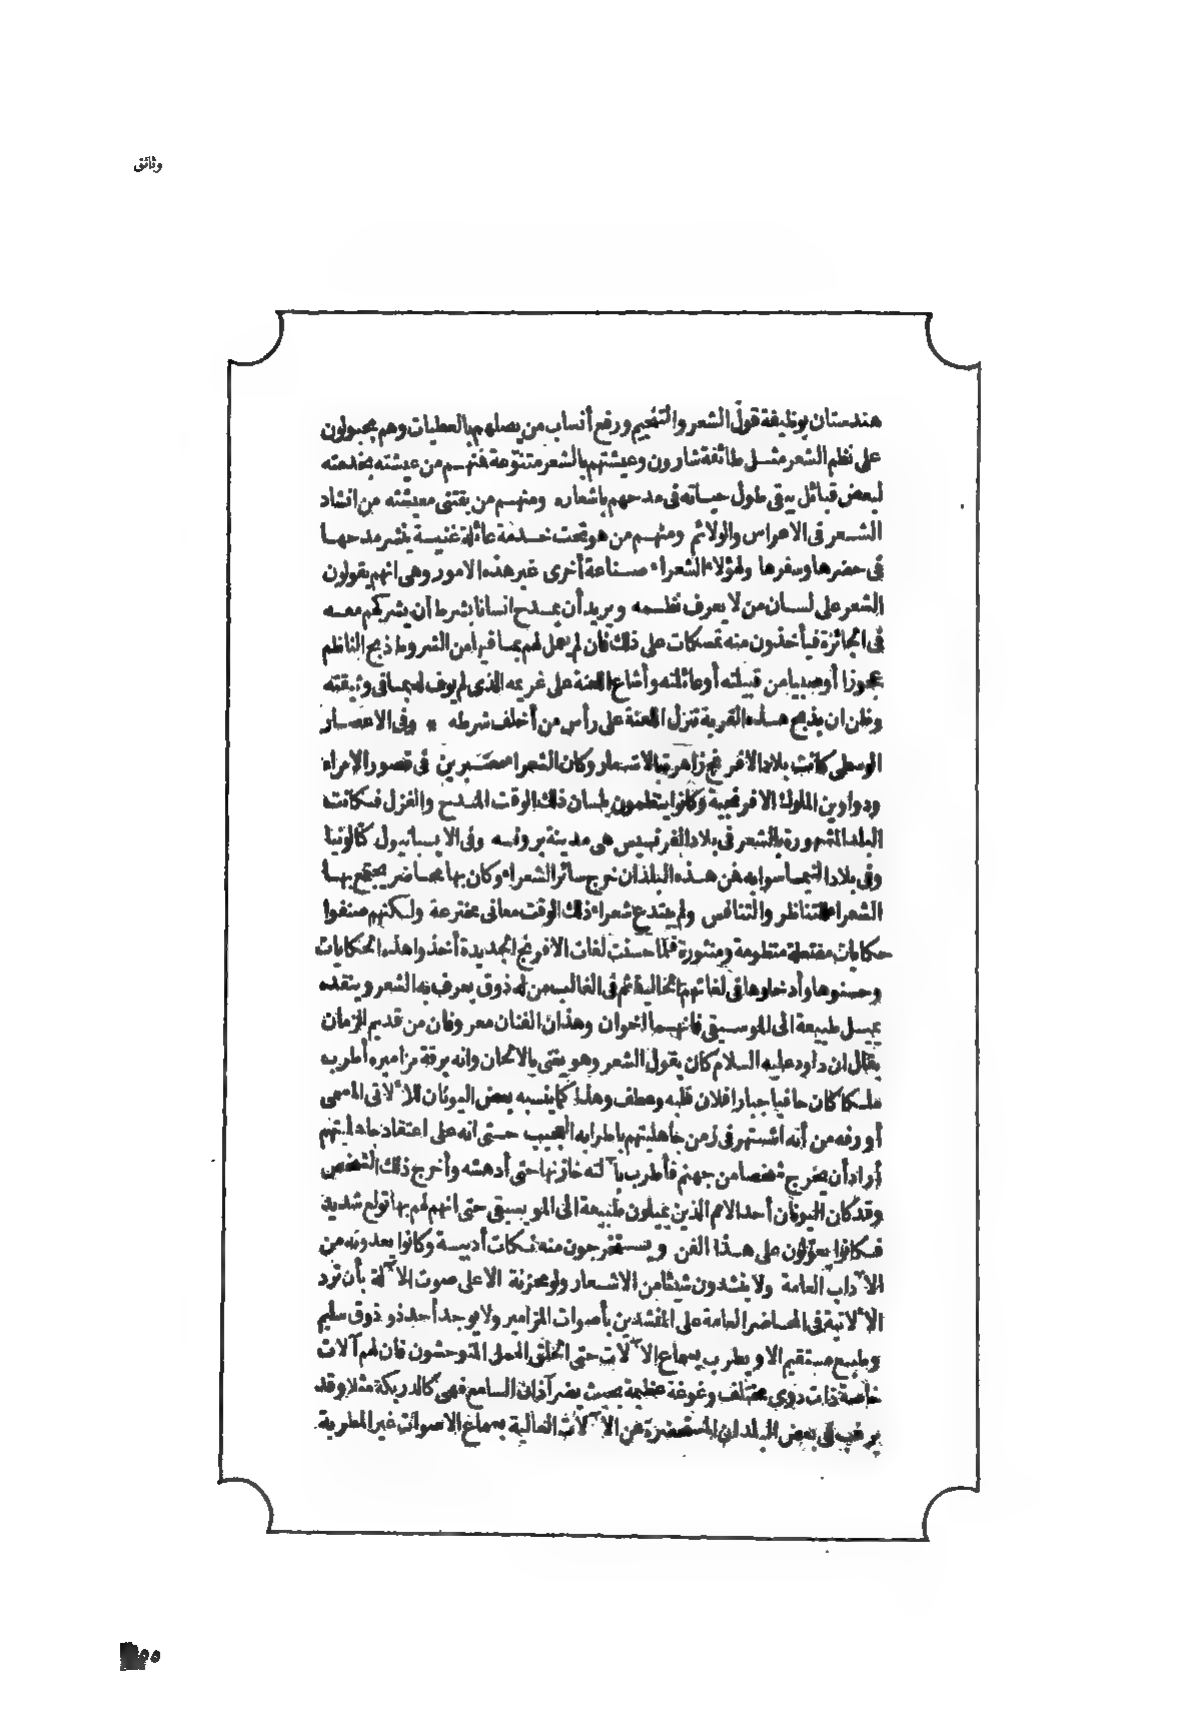 وثائق
هندستان بوظيفة قول الشعر والتفخيم ورفع أنساب من يصلهم بالعطيات وهم مجبولون
على نظم الشعر مثل طائفة شارون وعيشتهم بالشعر متنوعة فمنهم من عيشته بخدمته
لبعض قبائل يبقى طول حياته في مدحهم باشعاره ومنهم من يقتنى معيشته من انشاد
الشعر في الاعراس والولائم ومنهم من هو تحت خدمة عائلة غنية ينشر مدحها
في حضرها وسفرها ولهؤلاء الشعراء صناعة أخرى غير هذه الامور وهى انهم يقولون
الشعر على لسان من لا يعرف نظمه ويريد أن يمدح انسانا بشرط أن يشركهم معه
في الجائزة فيأخذون منه تمسكات على ذلك فان لم يعمل لهم بما فيها من الشروط ذبح الناظم
عجوزا أو صبيا من قبيلته أو عائلته وأشاع اللعنة على غريمه الذى لم يوف له بما في وثيقته
وظن ان بذبح هذه القربة تنزل اللعنة على رأس من أخلف شرطه * وفى الاعصار
الوسطى كانت بلاد الافرنج زاهرة بالاشعار وكان الشعراء معتبرين في قصور الامراء
ودواوين الملوك الافرنجية وكانوا ينظمون بلسان ذلك الوقت المدح والغزل فكانت
البلد المشهورة بالشعر في بلاد الفرنسيس هى مدينة بروفنسه وفى الاسبانيول كالونيا
وفى بلاد النيمسا سوابه فمن هذه البلدان خرج سائر الشعراء وكان بها محاضر يجتمع بها
الشعراء للتناظر والتنافس ولم يبتدع شعراء ذلك الوقت معانى مخترعة ولكنهم صنفوا
حكايات مفتعلة منظومة ومنثورة فلما حسنت لغات الافرنج الجديدة أخذوا هذه الحكايات
وحسنوها وأدخلوها في لغاتهم الحالية ثم في الغالب من له ذوق يعرف به الشعر وينقده
يميل طبيعة الى الموسيقى فانهما اخوان وهذان الفنان معروفان من قديم الزمان
يقال ان داود عليه السلام كان يقول الشعر وهو يغنى بالالحان وانه برقة مزاميره أطرب
ملكا كان جافيا جبارا فلان قلبه وعطف وهذا كما ينسبه بعض اليونان للآلاتى المسمى
أورفه من أنه اشتهر في زمن جاهليتهم باطرابه العجيب حتى انه على اعتقاد جاهليتهم
أراد أن يخرج شخصا من جهنم فأطرب بآلته خازنها حتى أدهشه وأخرج ذلك الشخص
وقد كان اليونان أحد الامم الذين يميلون طبيعة الى الموسيقى حتى انهم لهم بها تولع شديد
فكانوا يعولون على هذا الفن ويستخرجون منه نكات أدبية وكانوا يعدونه من
الآداب العامة ولا ينشدون شيئا من الاشعار ولو محزنة الا على صوت الآلة بأن ترد
الآلاتية في المحاضر العامة على المنشدين بأصوات المزامير ولا يوجد أحد ذو ذوق سليم
وطبع مستقيم الا ويطرب بسماع الآلات حتى الخلق الهمل المتوحشون فان لهم آلات
خاصة ذات دوى مختلف وغوغة عظيمة بحيث يضر آذان السامع فهى كالدربكة مثلا وقد
يرغب في بعض البلدان المتحضرة عن الآلات العالية بسماع الاصوات غير المطربة
٥٥